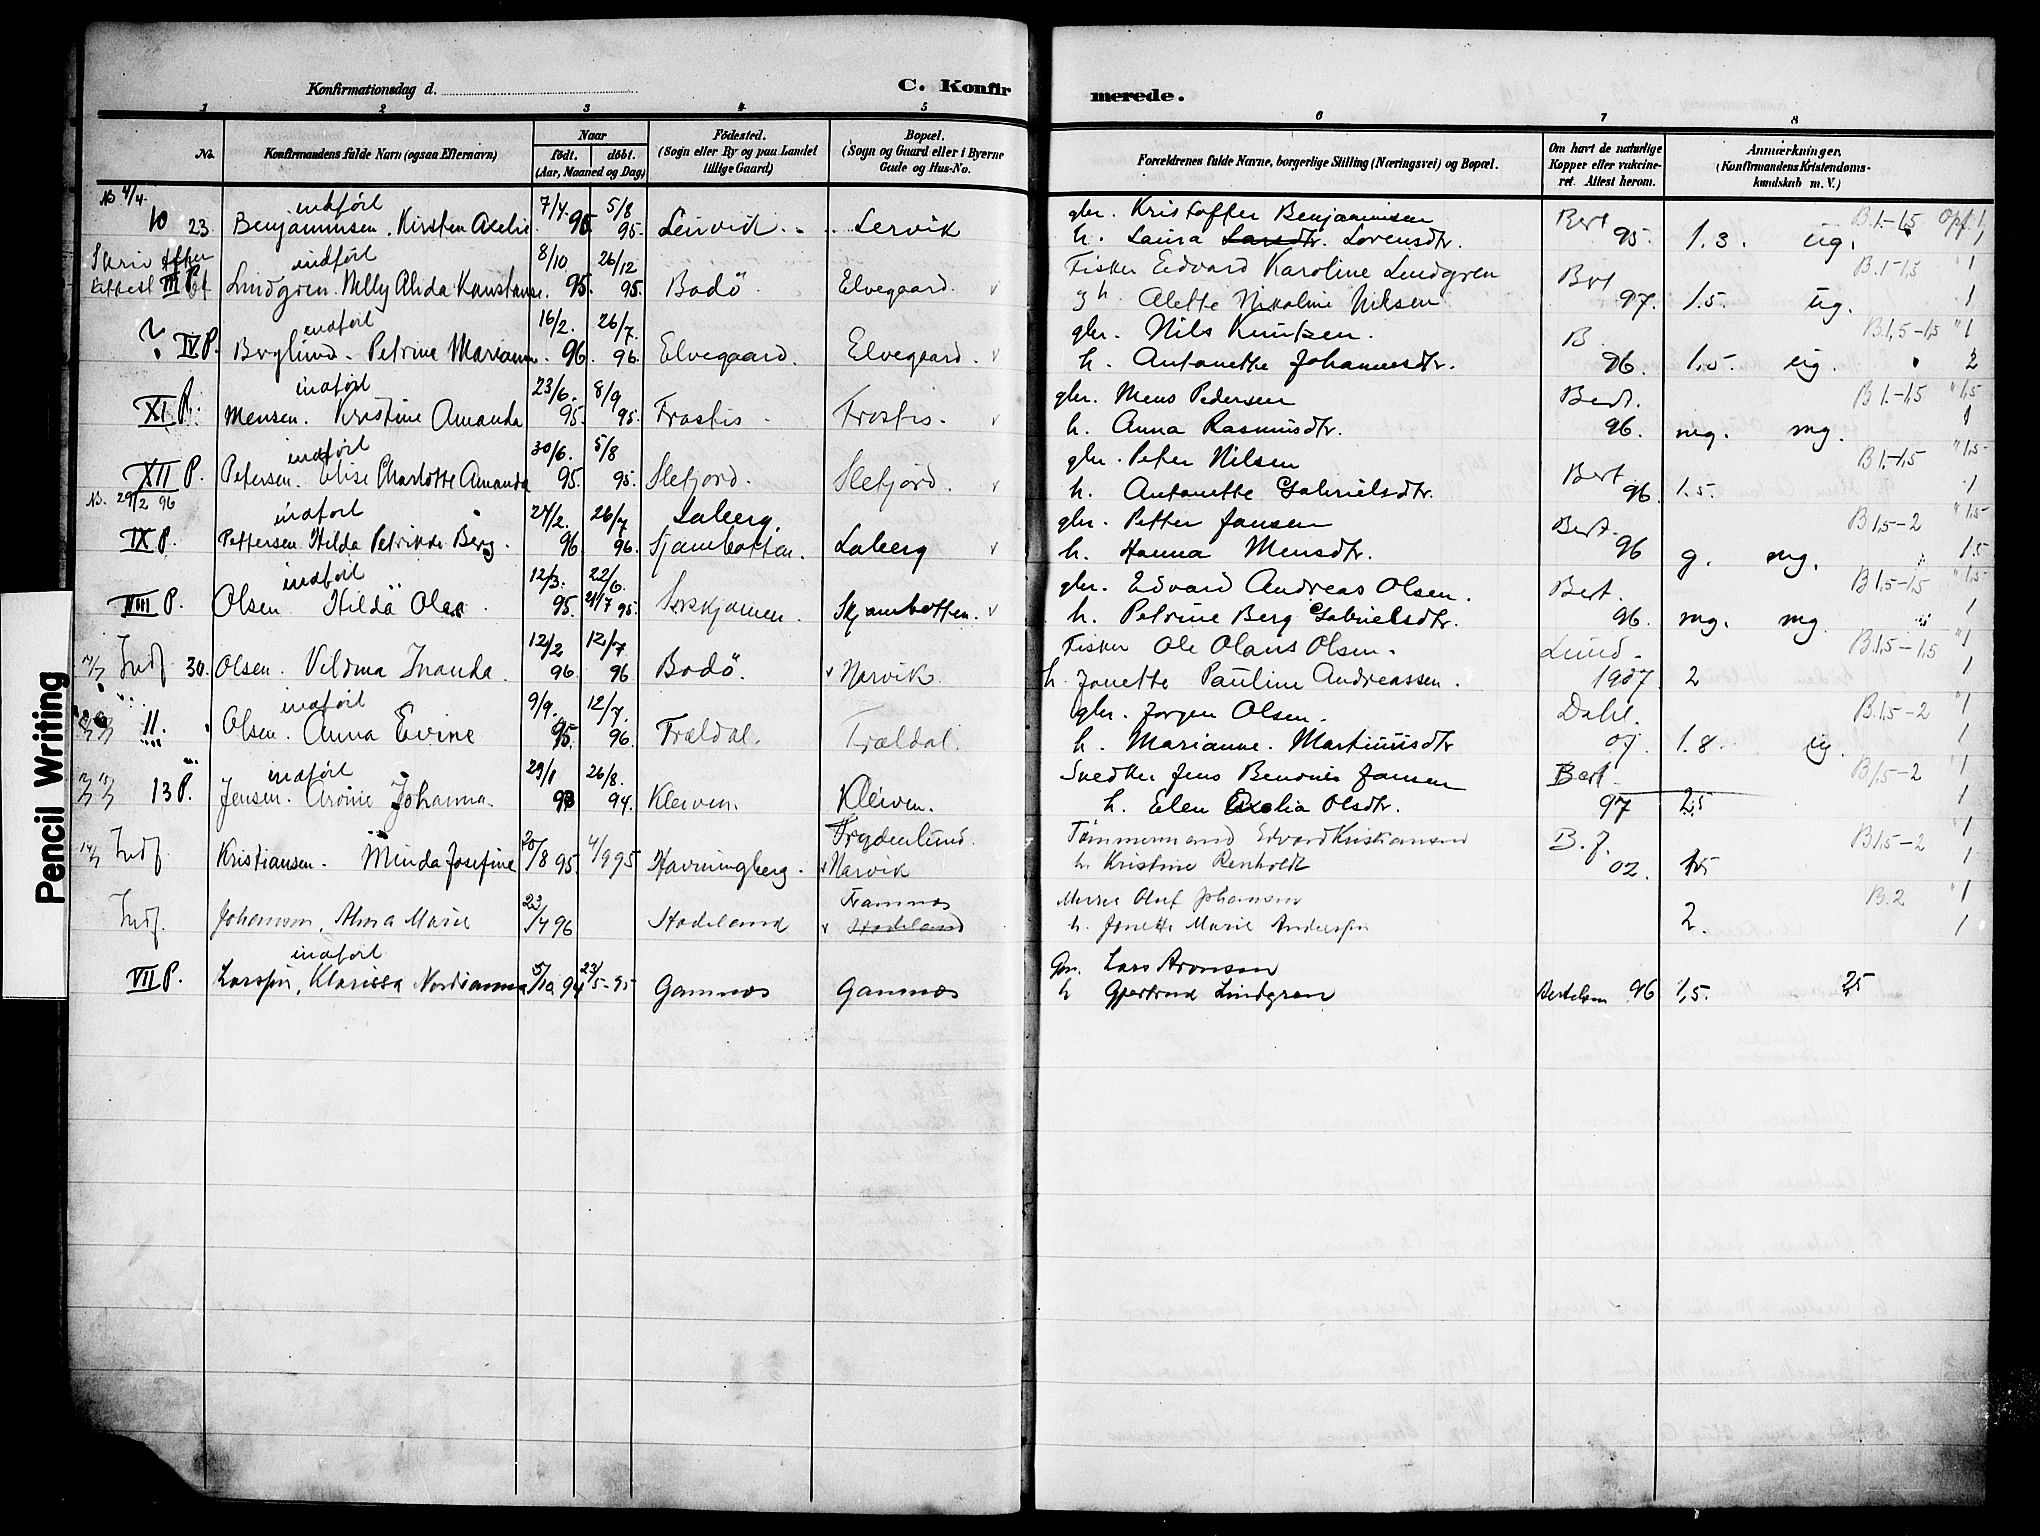 Konfirmationsdag d.
C. Konfirmerede.
1 2 3 4 5 6 7 8
No.
Konfirmandens fulde Navn (ogsaa Efternavn)
Naar
født. døbt.
(Aar, Maaned og Dag)
Fødested.
(Sogn eller By og paa Landet
tillige Gaard)
Bopæl.
(Sogn og Gaard eller i Byerne
Gade og Hus-No.
Forældrenes fulde Navne, borgerlige Stilling (Næringsvei) og Bopæl.
Om havt de naturlige
Kopper eller vakcine-
ret. Attest herom.
Anmærkninger,
(Konfirmandens Kristendoms-
kundskab m. V.)
indført 7/7. 5/8 gbr. Kristoffer Benjaminsen Bert B.1.-1,5
10 23 Benjaminsen. Kirsten Axelie 95. 95. Leirvik Lervik h. Laura Larsdtr. Lorensdtr. 95. 1.3. ug.
Skriv efter indført 8/10 26/12 Fisker Edvard Karoline Lindgren B.1-1,5 " 1
III P. Lindgren. Nelly Alida Konstanse. 95. 95. Bodö. Elvegaard. v h. Alette Nikoline Nilsen 97. 1.5. ug. 1
indført 16/2. 26/7. gbr. Nils Knutsen. B. B.1,5-1,5 " 1
? IV P. Berglund. Petrine Marianne. 96. 96. Elvegaard. Elvegaard. v h. Antonette Johannesdtr. 96. 1,5. ug. 2
indført 23/6. 8/9 gbr. Mens Pedersen Bert. B 1.-1,5 " 1,5
XI P. Mensen. Kristine Amanda 95. 95. Frostis. Frostis. v h. Anna Rasmusdtr. 96. mg. mg. 1
indført 30/6. 5/8 gbr. Peter Nilsen Bert B 1.-1,5 " 1.5
XII P. Petersen. Elise Charlotte Amanda 95. 95. Slefjord. Slefjord. v h. Antonette Gabrielsdtr. 96. 1.5. 1
NB. 29/2 96 indført 24/2. 26/7 Laberg. gbr. Petter Jansen Bert. B 1,5-2 " 1.5
IX P. Pettersen Hilda Petrikke Berg. 96. 96. Sjambotten. Laberg v h. Hanna Mensdtr. 96 g. mg. 1.5
indført 12/3. 22/6 gbr. Edvard Andreas Olsen. Bert. B 1,5-1,5 " 1,5
VIII P. Olsen Hilda Olea. 95. 21/7 95. Skjambotten. v h. Petrine Berg Gabrielsdtr. 96. mg. mg. 1
12/2 12/7 Fisker Ole Olaus Olsen. Lund. B.1,5-1,5 " 1
Indf 30. Olsen. Veldma Inanda. 96. 96 Bodö. v Narvik. h. Jonette Pauline Andreassen. 1907. 2 1
indført 9/9. 12/7. gbr. Jørgen Olsen. Dahl. B.1,5-2 " 1
11. Olsen. Anna Evine 95. 96. Fraldal. Traldal. h. Marianne. Martinusdtr 07. 1.8. ug. 1
indført 29/1 26/8. Snedker Jens Benonis Jansen Bert. B 1,5-2 " 1
13 P. Jensen. Aronie Johanna. 93 94. Kleiven. Kleiven. h. Elen Axelia Olsdtr. 97 2,5 1
Frydenlund. Tømmermand Edvard Kristiansen B.J. B1,5-2 " 1
14/7 Indf. Kristiansen. Minda Josefine 20/8 95. 4/9 95 Havningberg. v Narvik h. Kristine Renholdt 02. 1,5 1
Framnes Murer Oluf Johansen B.2 " 1
Indf. Johansen, Alma Marie 23/7 96 Stadeland v Stadeland h. Jonette Marie Anderssen 2. 1
indført Gbr. Lars Aronsen
VII P. Larssen, Klarissa Nordianna 5/10 94 23/5-95 Gamnes Gamnes h Gjertrud Lindgren Bertelsen 96 1,5. 2,5
Pencil Writing